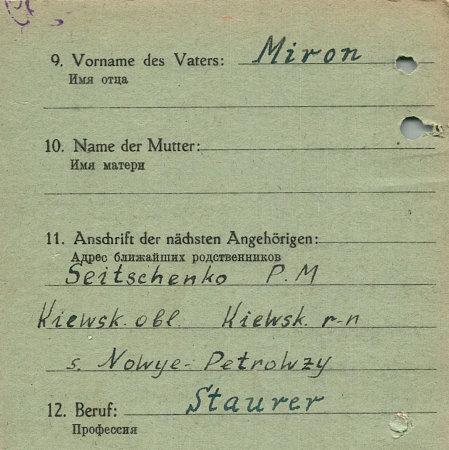 9. Vorname des Vaters: Miron
Имя отца
10. Name der Mutter:
Имя матери
11. Anschrift der nächsten Angehörigen:
Адрес ближайших родственников
Seitschenko P.M
Kiewsk. obl Kiewsk. r-n
s. Nowye-Petrowzy
12. Beruf: Staurer
Профессия